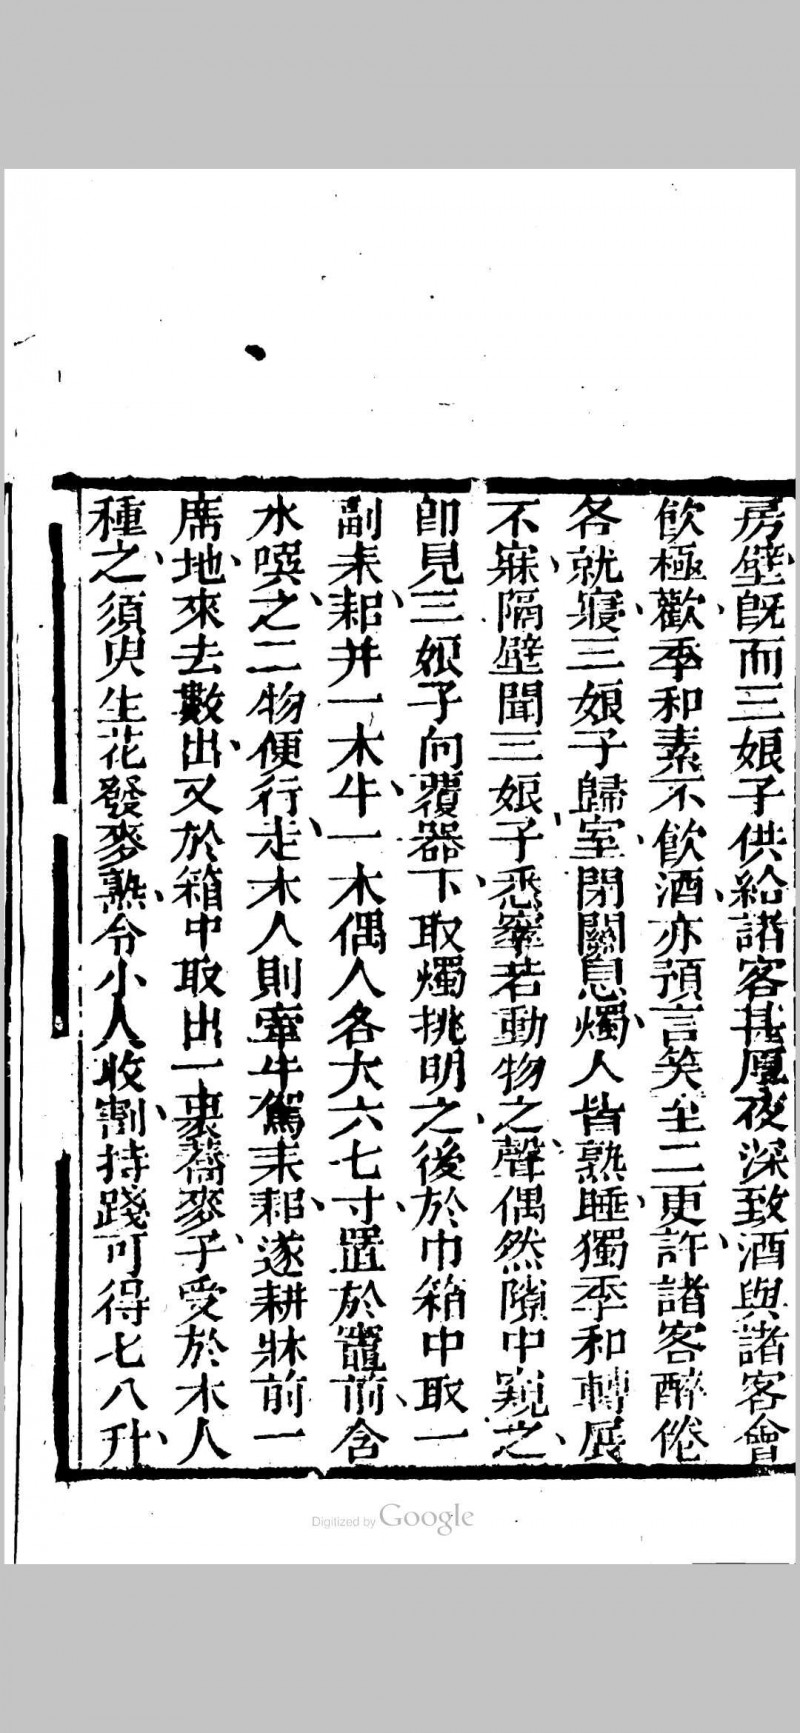 房壁既而三娘子供給諸客甚厚夜深致酒與諸客會
飲極歡季和素不飲酒亦預言笑至二更許諸客醉倦
各就寢三娘子歸室閉關息燭人皆熟睡獨季和轉展
不寐隔壁聞三娘子悉窣若動物之聲偶然隙中窺之
即見三娘子向覆器下取燭挑明之後於巾箱中取一
副耒耜并一木牛一木偶人各大六七寸置於竈前含
水噀之二物便行走木人則牽牛駕耒耜遂耕牀前一
席地來去數出又於箱中取出一裹蕎麥子受於木人
種之須臾生花發麥熟令小人收割持踐可得七八升
Digitized by Google